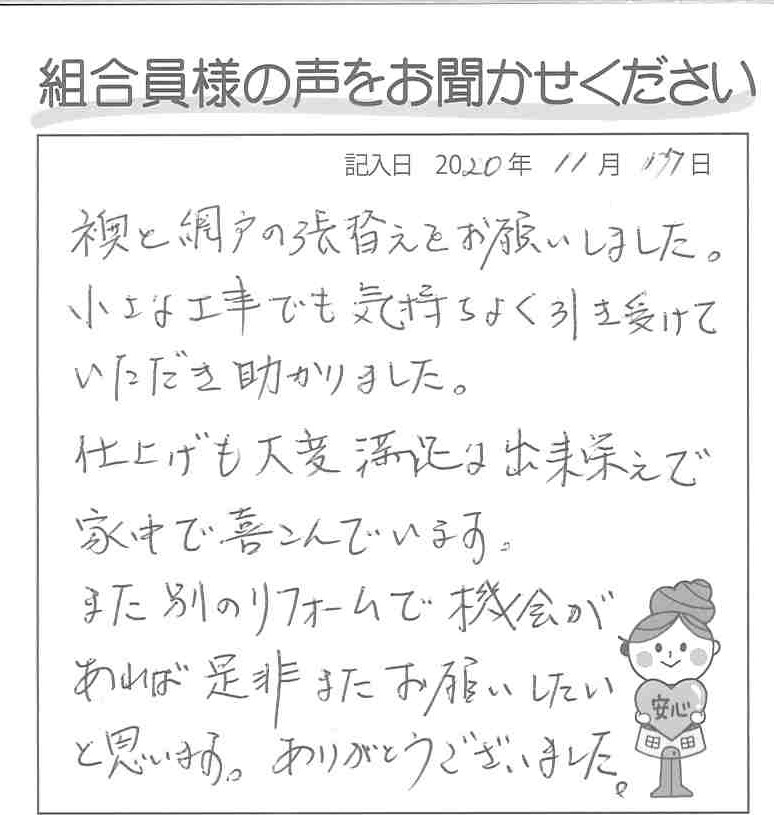 組合員様の声をお聞かせください
記入日 2020年 11月 日
襖と網戸の張替えをお願いしました。
小さな工事でも気持ちよく引き受けて
いただき助かりました。
仕上げも大変満足な出来栄えで
家中で喜こんでいます。
また別のリフォームで機会が
あれば是非またお願いしたい
と思います。ありがとうございました。
安心